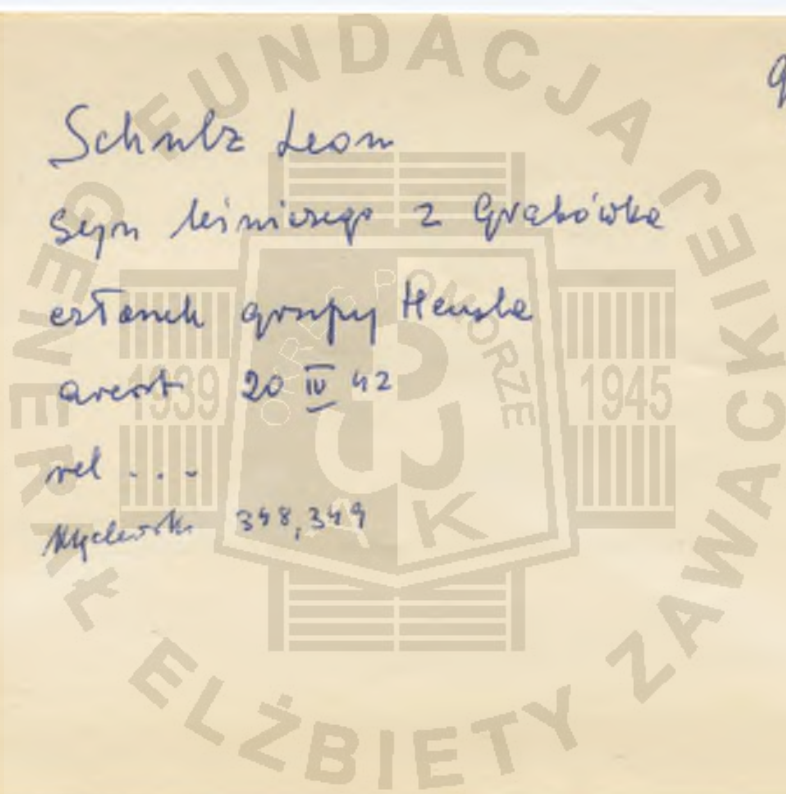 Schulz Leon
syn leśniczego z Grabówka
członek grupy Hensla
areszt 20 IV 42
rel ...
348, 349
FUNDACJA JEJ
GENERAŁ ELŻBIETY ZAWACKIEJ
OKRĘG POMORZE
1939 1945
AK